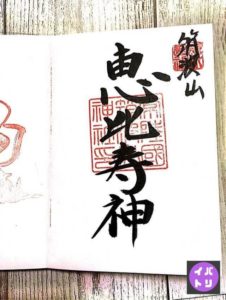 筑波山
恵比寿神
イバ
トリ